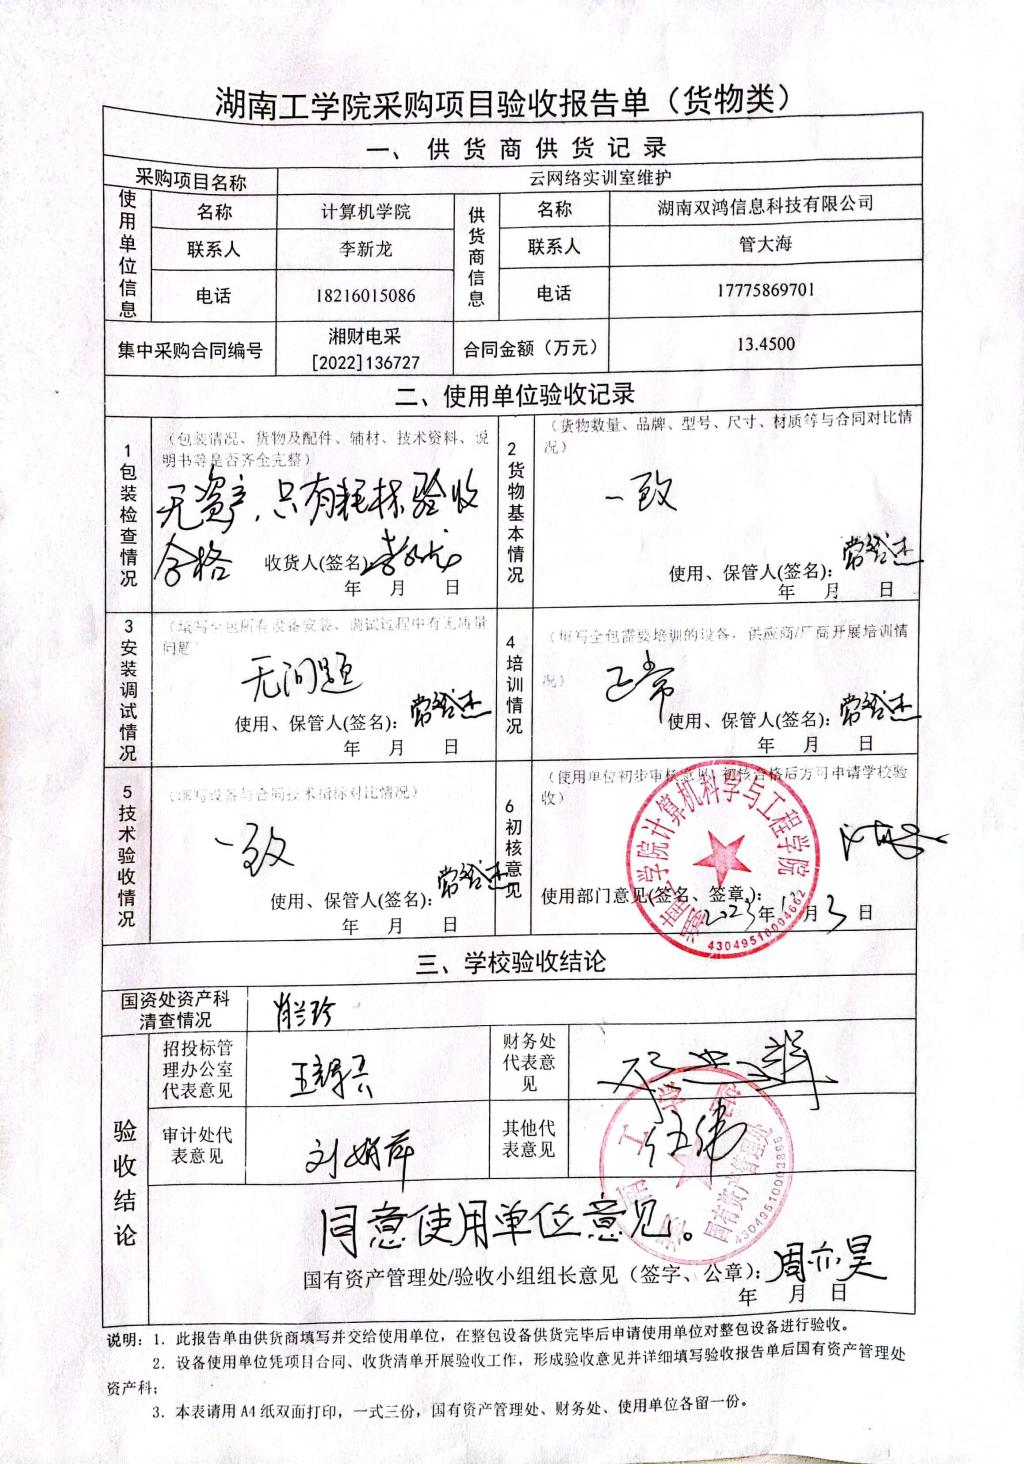 湖南工学院采购项目验收报告单（货物类）
一、供货商供货记录
采购项目名称
云网络实训室维护
使用单位信息
名称
计算机学院
供货商信息
名称
湖南双鸿信息科技有限公司
联系人
李新龙
联系人
管大海
电话
18216015086
电话
17775869701
集中采购合同编号
湘财电采
[2022]136727
合同金额（万元）
13.4500
二、使用单位验收记录
1包装检查情况
（包装情况、货物及配件、辅材、技术资料、说
明书等是否齐全完整）
无资产，只有耗材验收
合格
收货人(签名)
年 月 日
2货物基本情况
（货物数量、品牌、型号、尺寸、材质等与合同对比情
况）
一致
使用、保管人(签名)：
年 月 日
3安装调试情况
（填写全包所有设备安装、调试过程中有无质量
问题
无问题
使用、保管人(签名)：
年 月 日
4培训情况
（填写全包需要培训的设备，供应商/厂商开展培训情
况）
正常
使用、保管人(签名)：
年 月 日
5技术验收情况
（填写设备与合同技术指标对比情况）
一致
使用、保管人(签名)：
年 月 日
6初核意见
（使用单位初步审核意见，初核合格后方可申请学校验
收）
湖南工学院计算机科学与工程学院
43049510004662
使用部门意见(签名、签章)：
2023年 月3日
三、学校验收结论
国资处资产科
清查情况
肖兰珍
验收结论
招投标管
理办公室
代表意见
财务处
代表意
见
审计处代
表意见
刘娟萍
其他代
表意见
伍伟
湖南工学院
国有资产管理处
43049510003865
同意使用单位意见。
国有资产管理处/验收小组组长意见（签字、公章）：周亦昊
年 月 日
说明：1. 此报告单由供货商填写并交给使用单位，在整包设备供货完毕后申请使用单位对整包设备进行验收。
2. 设备使用单位凭项目合同、收货清单开展验收工作，形成验收意见并详细填写验收报告单后国有资产管理处
资产科；
3. 本表请用 A4 纸双面打印，一式三份，国有资产管理处、财务处、使用单位各留一份。